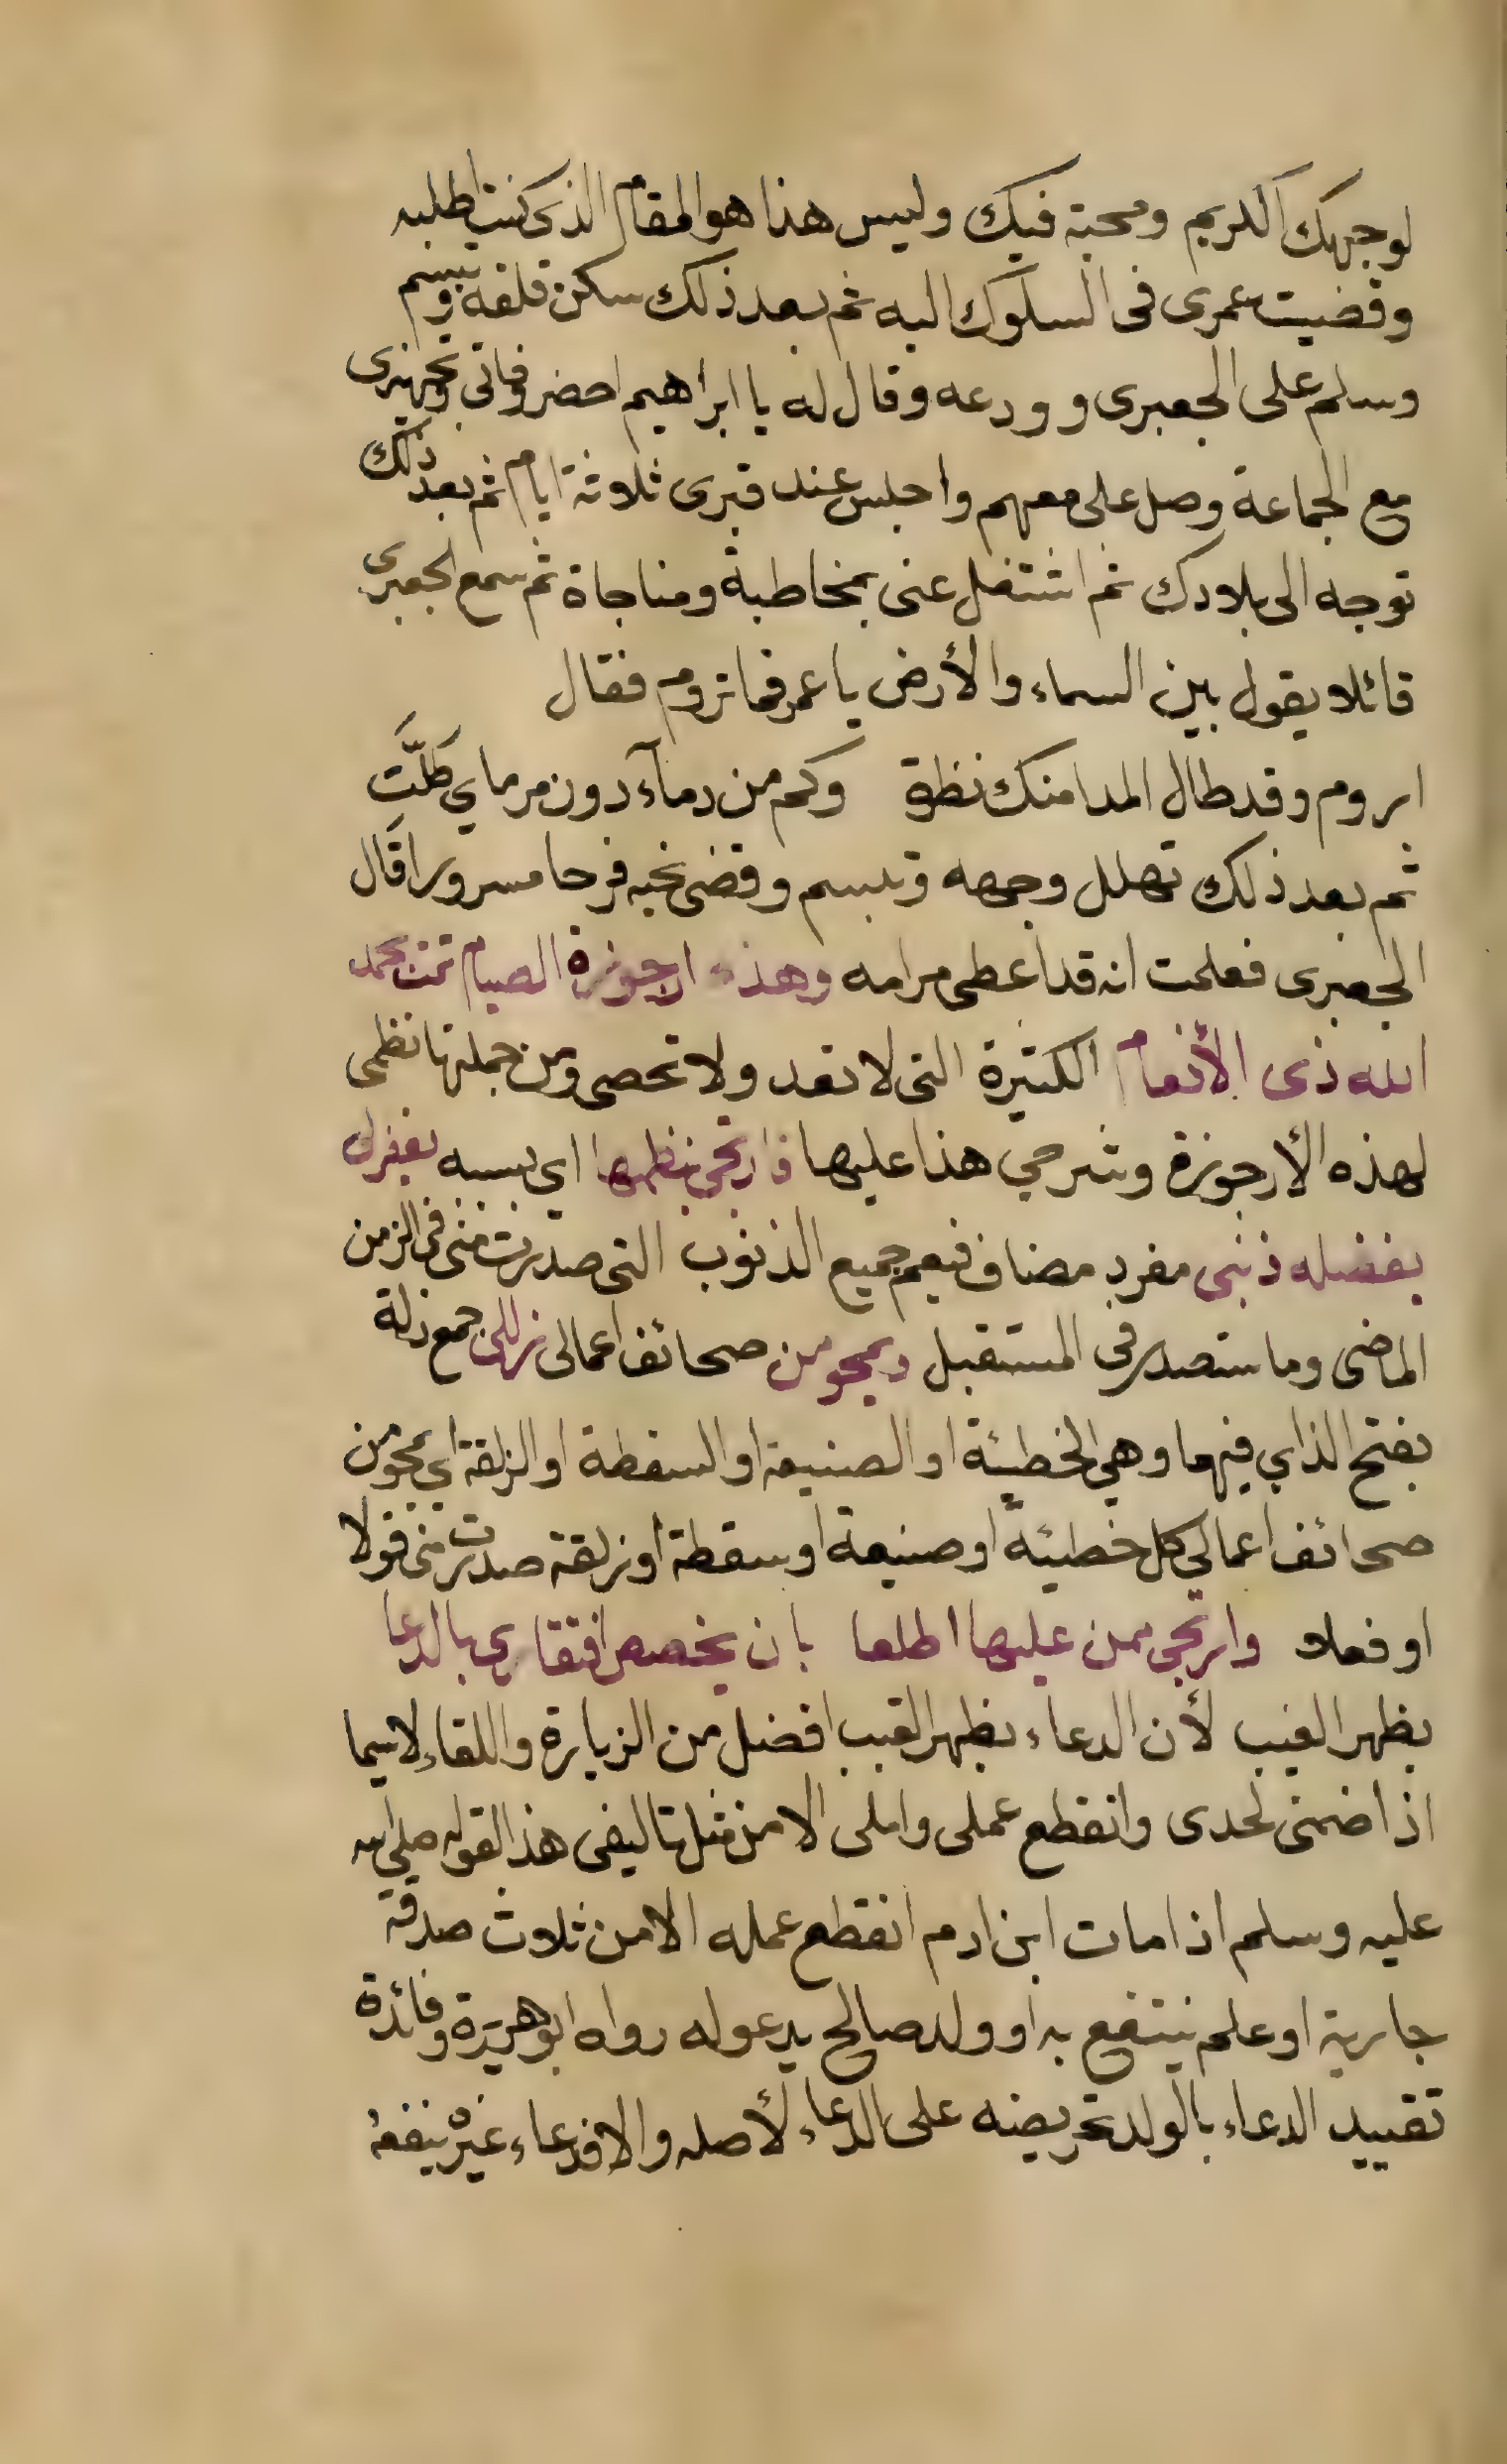 لوجهك الكريم ومحبة فيك وليس هذا هو المقام الذي كنت اطلبه
وقضيت عمرى فى السلوك اليه ثم بعد ذلك سكن قلقه وتبسم
وسلم على الجعبرى وودعه وقال له يا ابراهيم احضر وفاتى وتجهيزى
مع الجماعة وصل على معهم واجلس عند قبرى ثلاثة ايام ثم بعد ذلك
توجه الى بلادك ثم اشتغل عنى بمخاطبة ومناجاة ثم سمع الجعبرى
قائلا يقول بين السماء والأرض يا عمر فما تروم فقال
اروم وقد طال المدا منك نظرة وكم من دمآء دون مرماي طَلَّت
ثم بعد ذلك تهلل وجهه وتبسم وقضى نحبه فرحا مسرورا قال
الجعبرى فعلمت انه قد اعطى مرامه وهذه ارجوزة الصيام تمت بحمد
الله ذى الأنعام الكثيرة التى لا تعد ولا تحصى ومن جملتها نظمى
لهذه الأرجوزة وشرحي هذا عليها فارتجى بنظمها اي بسببه يغفر لى
بفضله ذنبى مفرد مضاف فيعم جميع الذنوب التى صدرت منى فى الزمن
الماضى وما ستصدر فى المستقبل ويمحو من صحائف اعمالى زللى جمع زلة
بفتح الذاي فيهما وهى الخطيئة او الصنيعة او السقطة او الزلقة اي يمحو من
صحائف اعمالي كل خطيئة او صنيعة او سقطة او زلقة صدرت منى قولا
او فعلا وارتجى ممن عليها اطلعا بان يخصص افتقاري بالدعا
بظهر الغيب لأن الدعاء بظهر الغيب افضل من الزيارة واللقاء لاسيما
اذا ضمنى لحدى وانقطع عملى واملى الا من مثل تاليفى هذا لقوله صلى الله
عليه وسلم اذا مات ابن ادم انقطع عمله الا من ثلاث صدقة
جارية او علم ينتفع به او ولد صالح يدعو له رواه ابو هريرة وفائدة
تقييد الدعاء بالولد تحريضه على الدعاء لأصله والا فدعاء غيره ينفعه